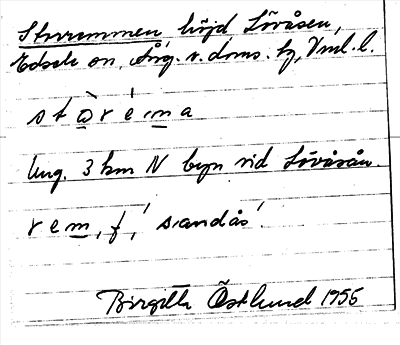 Storremmen, höjd Lövåsen,
Edsele sn, Ång. s. doms. tg, Vnl. l.
stɷ̀réma
Ung. 3 km N byn vid Lövåsån.
rem, f, 'sandås'.
Birgitta Östlund 1955